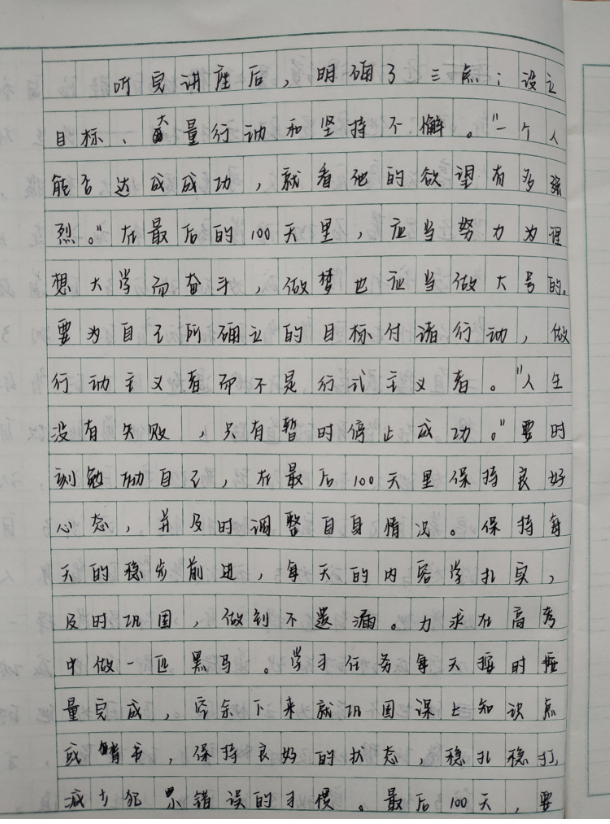 听完讲座后，明确了三点：设立
目标、大量行动和坚持不懈。"一个人
能否达成成功，就看他的欲望有多强
烈。"在最后的100天里，应当努力为理
想大学而奋斗，做梦也应当做大号的。
要为自己所确立的目标付诸行动，做
行动主义者而不是行式主义者。"人生
没有失败，只有暂时停止成功。"要时
刻勉励自己，在最后100天里保持良好
心态，并及时调整自身情况。保持每
天的稳步前进，每天的内容学扎实，
及时巩固，做到不遗漏。力求在高考
中做一匹黑马。学习任务每天按时按
量完成，空余下来就巩固课上知识点
或背书，保持良好的状态，稳扎稳打，
减少犯错误的习惯。最后100天，要